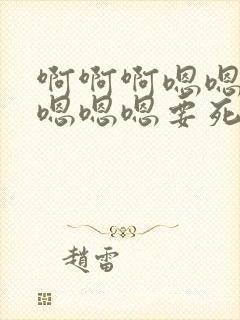 啊啊啊嗯嗯
嗯嗯嗯要死
趙雷